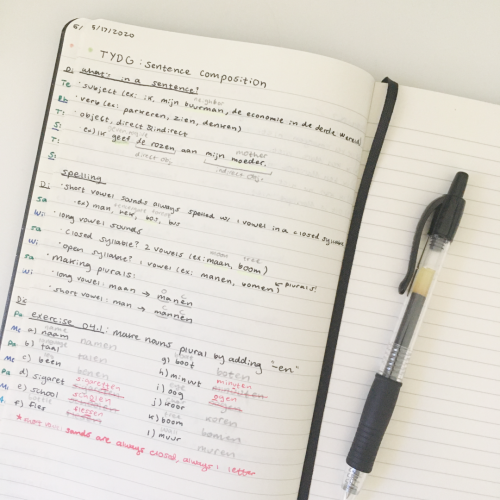 5/17/2020
TYDG: Sentence Composition
What's in a sentence?
neighbor
• subject (ex: ik, mijn buurman, de economie in de derde wereld)
• verb (ex: parkeren, zien, denken)
• object, direct & indirect
mother
ex) ik geef de rozen aan mijn moeder.
direct obj. indirect obj.
spelling
• short vowel sounds always spelled w/ 1 vowel in a closed syllable
ex) man, bus
• long vowel sounds
moon tree
closed syllable? 2 vowels (ex: maan, boom)
open syllable? 1 vowel (ex: manen, bomen) ↙ plurals!
• Making plurals:
long vowel: maan → manen
short vowel: man → mannen
exercise 04.1: Make nouns plural by adding "-en"
a) naam namen g) boot boten
b) taal talen h) minuut minuten
c) been benen i) oog ogen
d) sigaret sigaretten j) koor koren
e) school scholen k) boom bomen
f) fles flessen l) muur muren
* short sounds are always closed, always 1 letter